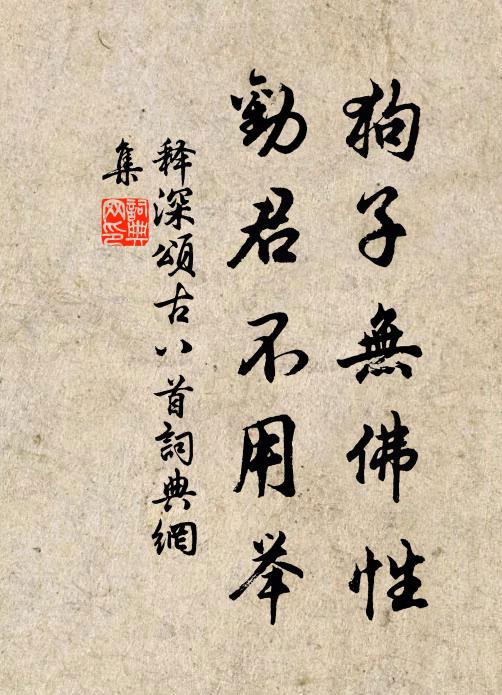 狗子無佛性
勸君不用举
释深頌古八首詞典網
集
詞典
网印